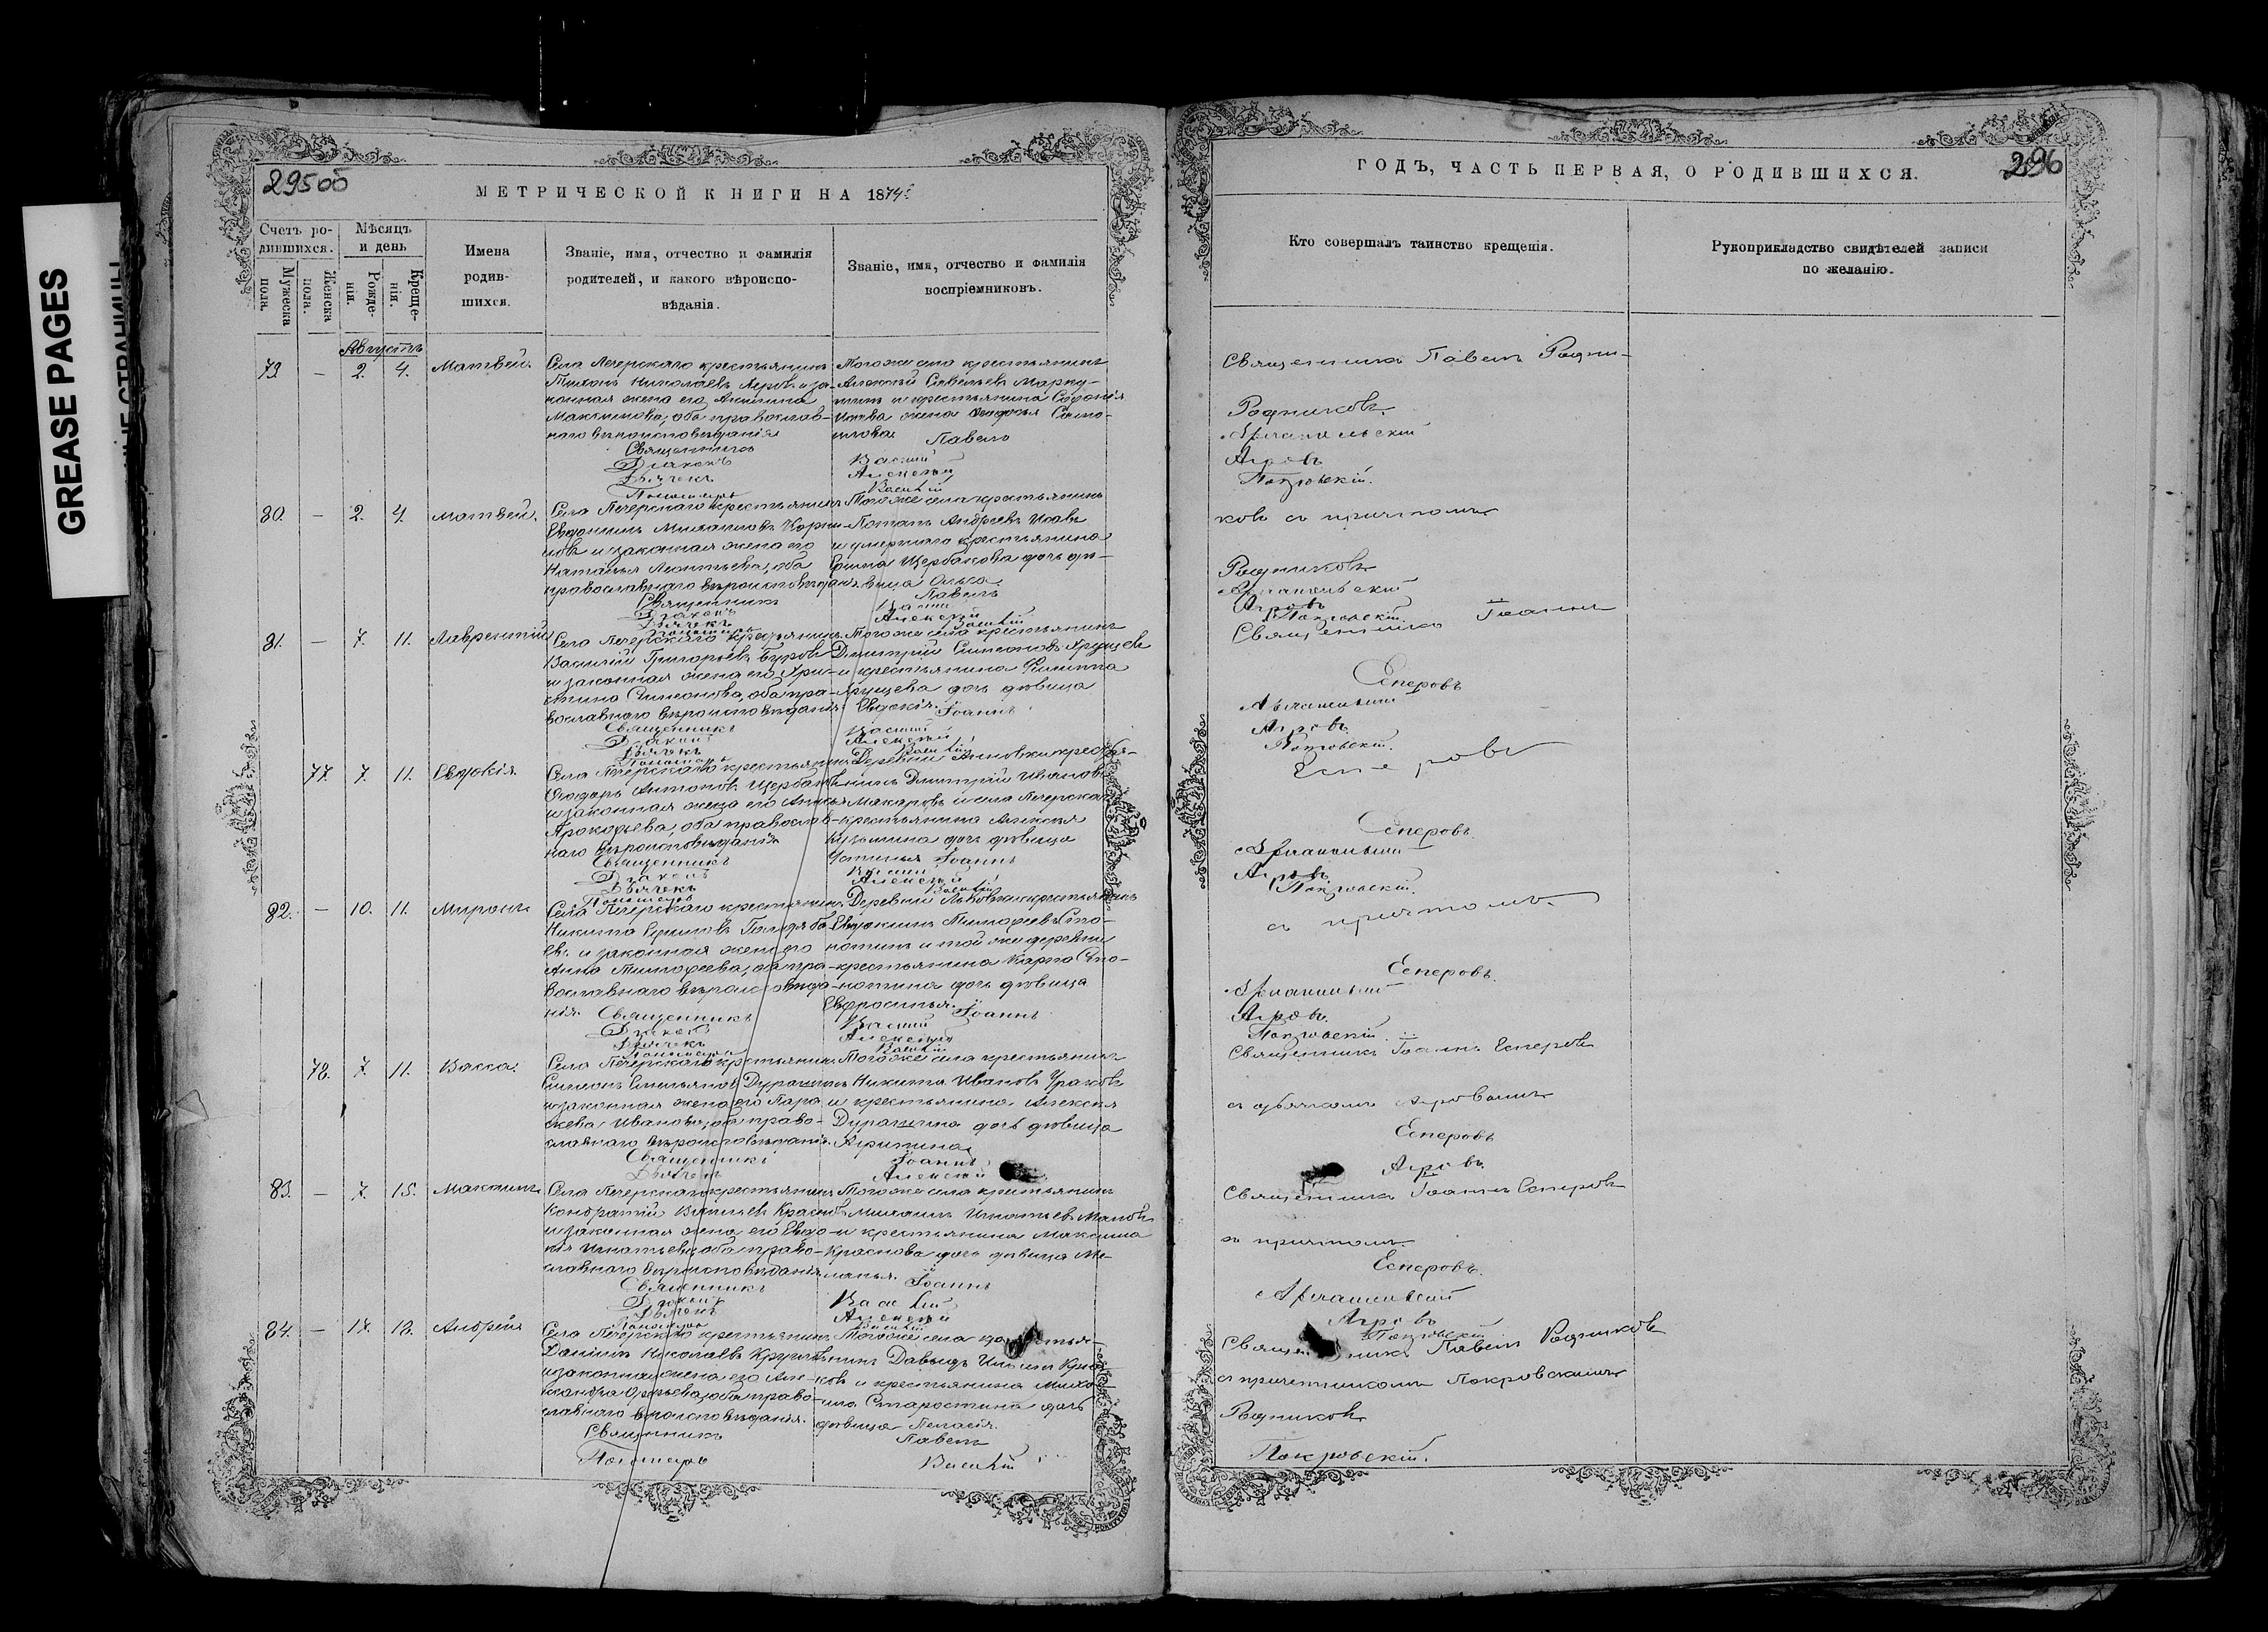 GREASE PAGES
295об
МЕТРИЧЕСКОЙ КНИГИ НА 1874
Счетъ ро-
дившихся.
Мужеска
пола.
Женска
пола.
Мѣсяцъ
и день
Рожде-
нія.
Креще-
нія.
Имена
родив-
шихся.
Званіе, имя, отчество и фамилія
родителей, и какого вѣроиспо-
вѣданія.
Званіе, имя, отчество и фамилія
воспріемниковъ.
Августъ
79 – 2. 4. Матвей.
Села Печерскаго крестьянинъ
Тихонъ Николаевъ и за-
конная жена его
Максимова, оба православ-
наго вѣроисповѣданія
Священникъ
Діаконъ
Дьячекъ
Пономарь
Тогоже села крестьянинъ
Алексѣй Савельевъ
и крестьянина Софонія
жена Ѳедосья
Павелъ
Василій
Алексѣй
Василій
80. – 2. 4. Матвей.
Села Печерскаго крестьянинъ
Евдокимъ Михаиловъ
и законная жена его
Наталья Леонтьева, оба
православнаго вѣроисповѣданія
Священникъ
Діаконъ
Дьячекъ
Пономарь
Тогоже села крестьянинъ
Потапъ Андреевъ Исаевъ
и умершаго крестьянина
Щербакова дочь дѣ-
вица Ольга
Павелъ
Василій
Алексѣй
Василій
81. – 7. 11. Лаврентій
Села Печерскаго крестьянинъ
Василій Григорьевъ Буровъ
и законная жена его Хри-
стина Симеонова, оба пра-
вославнаго вѣроисповѣданія
Священникъ
Діаконъ
Дьячекъ
Пономарь
Тогоже села крестьянинъ
Дмитрій Симеоновъ Хрущевъ
и крестьянина Филиппа
Хрущева дочь дѣвица
Евдокія.
Іоаннъ
Василій
Алексѣй
Василій
77. 7. 11. Евдокія.
Села Печерскаго крестьянинъ
Ѳеодоръ Антоновъ Щербаковъ
и законная жена его Анисья
Прокофьева, оба православ-
наго вѣроисповѣданія
Священникъ
Діаконъ
Дьячекъ
Пономарь
Деревни Анновки крестья-
нинъ Дмитрій Ивановъ
Макаровъ и села Печерскаго
крестьянина Алексѣя
Кузьмина дочь дѣвица
Устинья
Іоаннъ
Василій
Алексѣй
Василій
82. – 10. 11. Миронъ
Села Печерскаго крестьянинъ
Никита
и законная жена его
Анна Тимофеева, оба пра-
вославнаго вѣроисповѣда-
нія.
Священникъ
Діаконъ
Дьячекъ
Пономарь
Деревни Львовки крестьянинъ
Евдокимъ Тимофеевъ Сто-
нотинъ и той же деревни
крестьянина Карпа Сто-
нотина дочь дѣвица
Евфросинья.
Іоаннъ
Василій
Алексѣй
Василій
78. 7. 11. Васса.
Села Печерскаго крестьянинъ
Симеонъ Емельяновъ
и законная жена его Пара-
скева Иванова, оба право-
славнаго вѣроисповѣданія.
Священникъ
Дьячекъ
Тогоже села крестьянинъ
Никита Ивановъ
и крестьянина Алексѣя
дочь дѣвица
Агрипина
Іоаннъ
Алексѣй
83. – 7. 15. Максимъ
Села Печерскаго крестьянинъ
Кондратій Васильевъ Красновъ
и законная жена его Евдо-
кія Игнатьева, оба право-
славнаго вѣроисповѣданія
Священникъ
Діаконъ
Дьячекъ
Пономарь
Тогоже села крестьянинъ
Михаилъ Игнатьевъ Мановъ
и крестьянина Максима
Краснова дочь дѣвица Ме-
ланья.
Іоаннъ
Василій
Алексѣй
Василій
84. – 17. 18. Андрей
Села Печерскаго крестьянинъ
Даніилъ Николаевъ Кругловъ
и законная жена его Але-
ксандра, оба право-
славнаго вѣроисповѣданія.
Священникъ
Пономарь
Тогоже села крестья-
нинъ Давыдъ Ильинъ
и крестьянина Миха-
ила Старостина дочь
дѣвица Пелагія.
Павелъ
Василій
ГОДЪ, ЧАСТЬ ПЕРВАЯ, О РОДИВШИХСЯ.
296
Кто совершалъ таинство крещенія.
Рукоприкладство свидѣтелей записи
по желанію.
Священникъ Павелъ Родни-
Родниковъ
Архангельскій
Агровъ
Покровскій.
ковъ съ причтомъ
Родниковъ
Архангельскій
Агровъ
Покровскій.
Священникъ Іоаннъ
Есперовъ
Архангельскій
Агровъ
Покровскій.
Есперовъ
Есперовъ.
Архангельскій
Агровъ
Покровскій.
съ причтомъ
Есперовъ.
Архангельскій
Агровъ.
Покровскій.
Священникъ Іоаннъ Есперовъ
съ дьячкомъ Агровымъ
Есперовъ
Агровъ.
Священникъ Іоаннъ Есперовъ
съ причтомъ
Есперовъ.
Архангельскій
Агровъ
Покровскій
Священникъ Павелъ Родниковъ
съ причетникомъ Покровскимъ
Родниковъ
Покровскій.